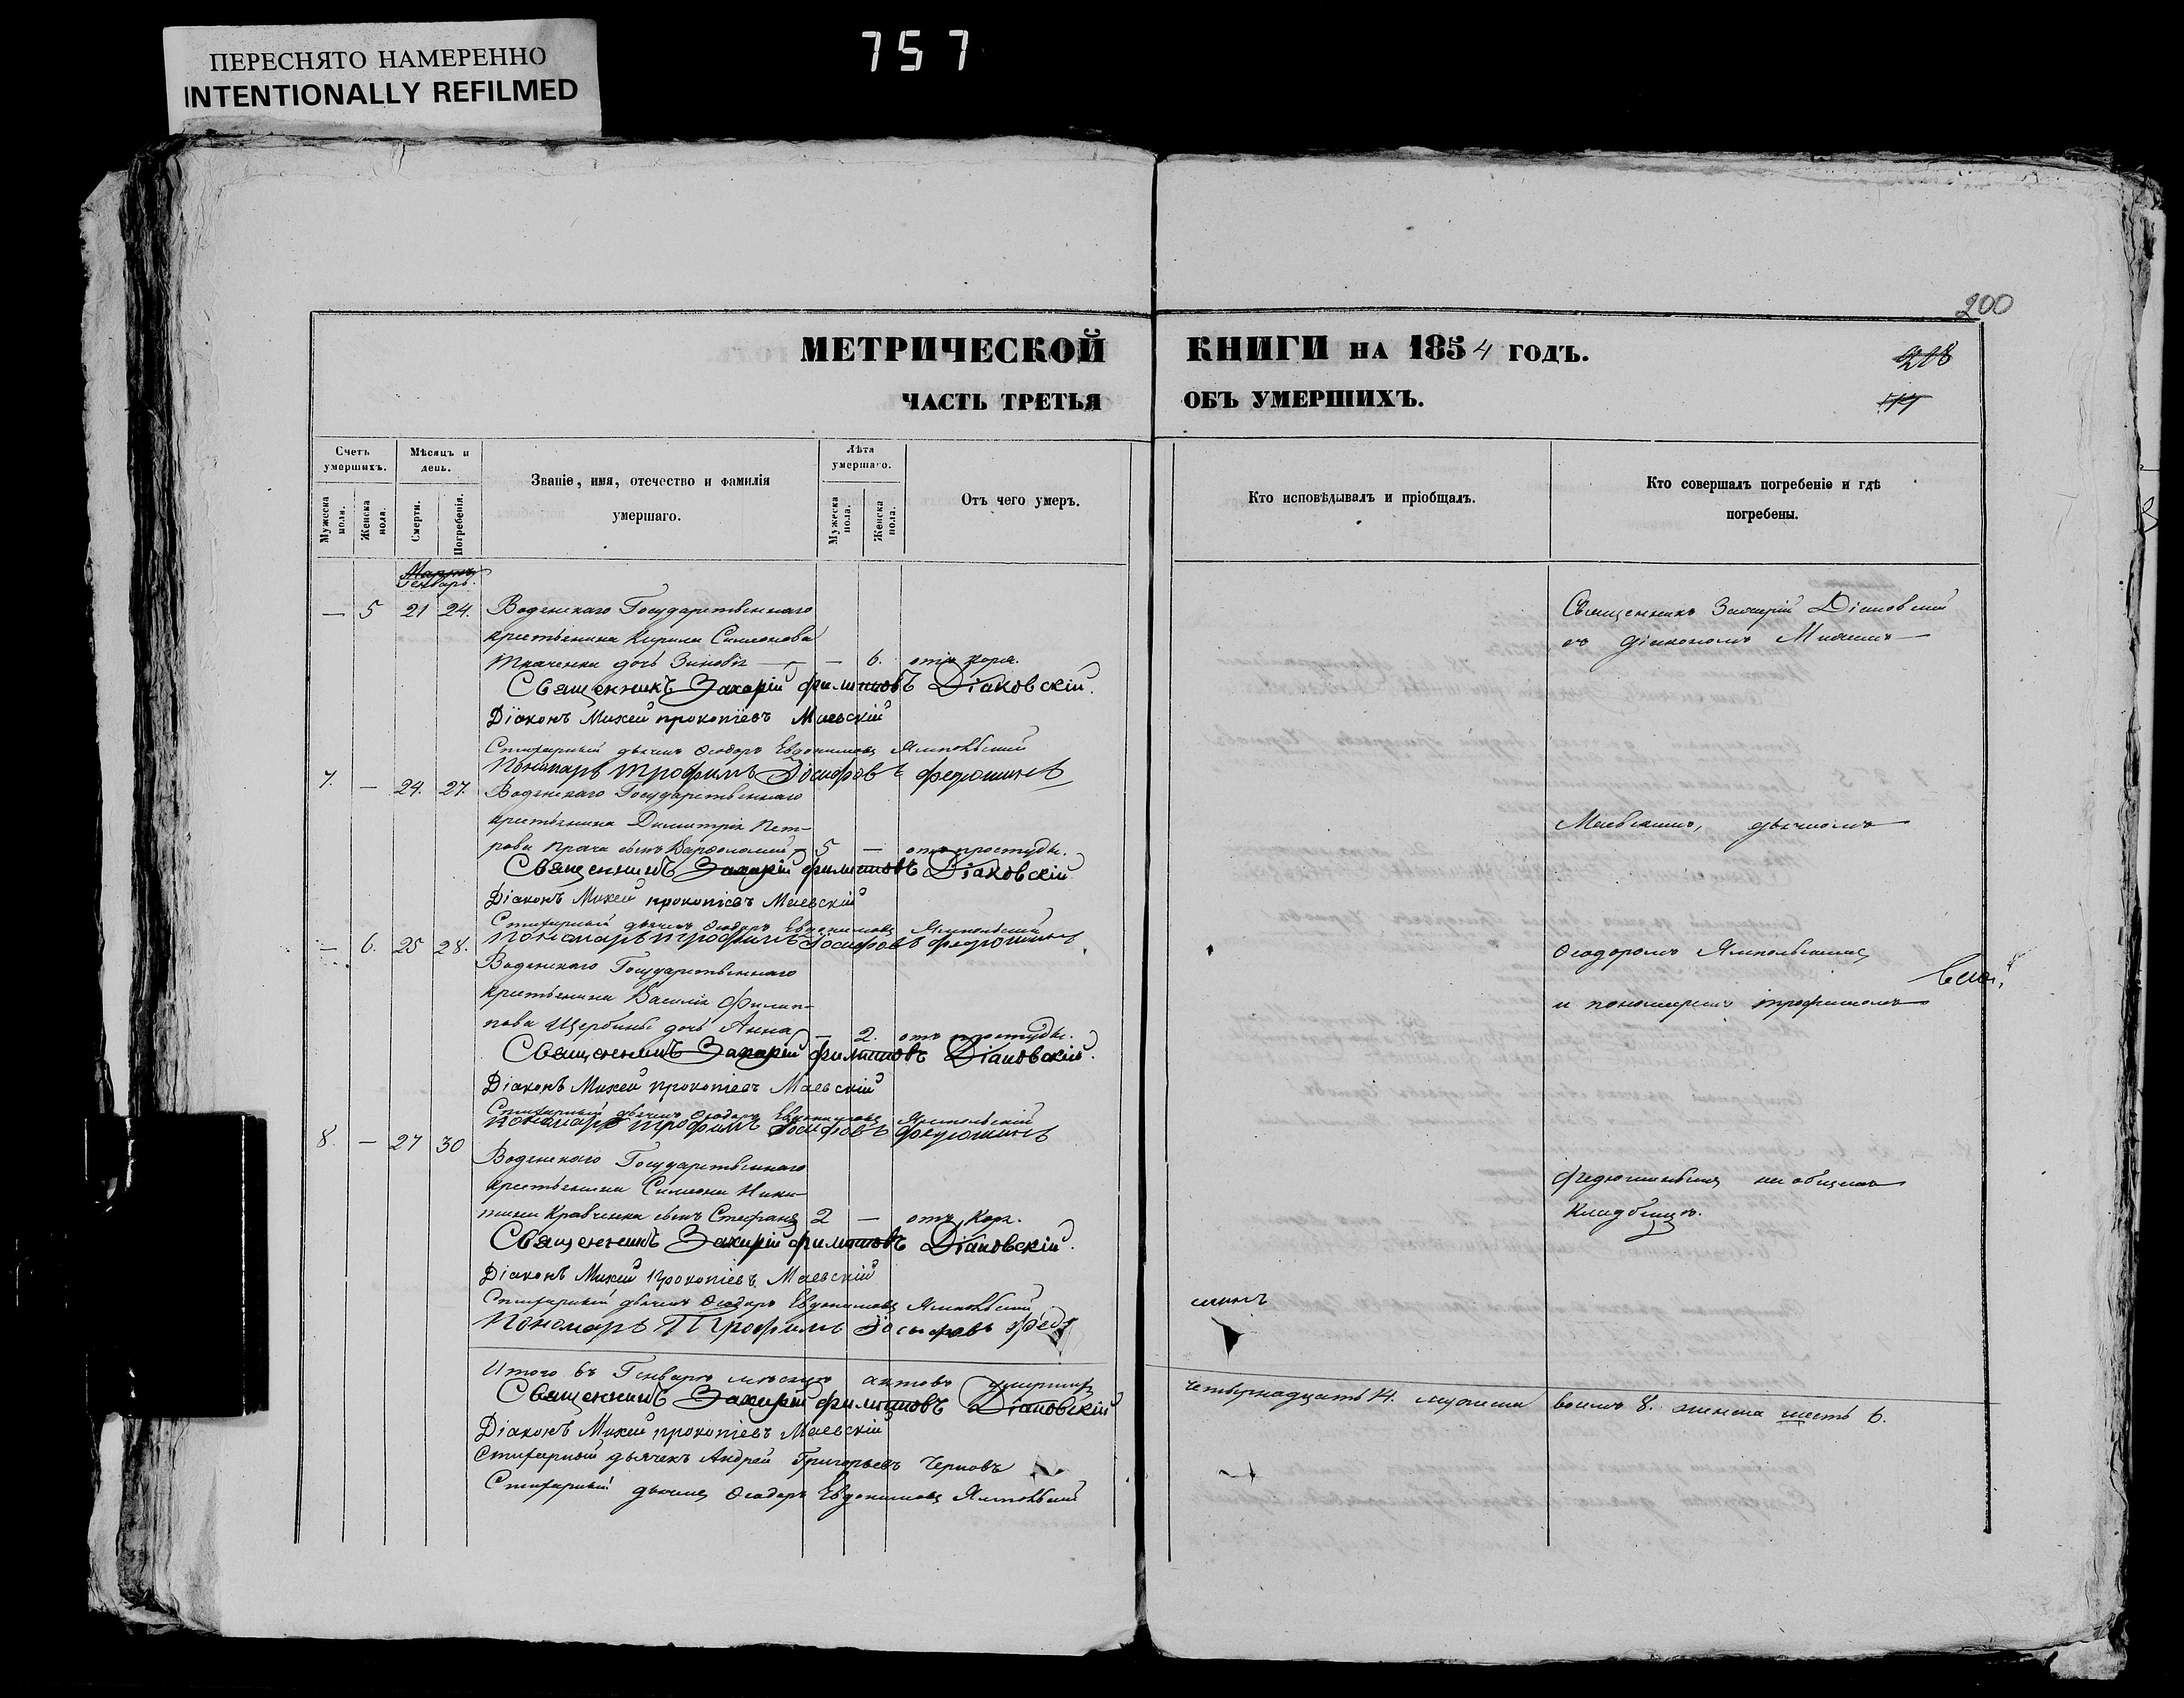 ПЕРЕСНЯТО НАМЕРЕННО
INTENTIONALLY REFILMED
757
200
МЕТРИЧЕСКОЙ КНИГИ НА 1854 ГОДЪ.
218
ЧАСТЬ ТРЕТЬЯ ОБЪ УМЕРШИХЪ.
Счетъ умершихъ.
Мужеска пола.
Женска пола.
Мѣсяцъ и день.
Смерти.
Погребенія.
Званіе, имя, отечество и фамилія
умершаго.
Лѣта умершаго.
Мужеска пола.
Женска пола.
Отъ чего умеръ.
Кто исповѣдывалъ и пріобщалъ.
Кто совершалъ погребеніе и гдѣ
погребены.
Мартъ
Генваръ.
— 5 21 24. Водянскаго Государственнаго
крестьянина Кирила Симеонова
Ткаченка дочь Зиновія — — 6. отъ коря.
Священникъ Захарій Филиповъ Діаковскій.
Діаконъ Михей Прокопіевъ Маевскій
Стихарный дьячекъ Ѳеодоръ Евдокимовъ Ямпольскій
Пономарь Трофимъ Іосифовъ Федюшинъ
7. — 24. 27. Водянскаго Государственнаго
крестьянина Димитрія Пет-
рова Прача сынъ Варфоломей 5 — отъ простуды.
Священникъ Захарій Филиповъ Діаковскій
Діаконъ Михей Прокопіевъ Маевскій
Стихарный дьячекъ Ѳеодоръ Евдокимовъ Ямпольскій
— 6. 25 28. Пономарь Трофимъ Іосифовъ Федюшинъ
Водянскаго Государственнаго
крестьянина Василія Филип-
пова Щербины дочь Анна — 2. отъ простуды.
Священникъ Захарій Филиповъ Діаковскій.
Діаконъ Михей Прокопіевъ Маевскій
Стихарный дьячекъ Ѳеодоръ Евдокимовъ Ямпольскій
8. — 27 30 Пономарь Трофимъ Іосифовъ Федюшинъ
Водянскаго Государственнаго
крестьянина Симеона Ники-
тина Кравченка сынъ Стефанъ 2 — отъ коря.
Священникъ Захарій Филиповъ Діаковскій.
Діаконъ Михей Прокопіевъ Маевскій
Стихарный дьячекъ Ѳеодоръ Евдокимовъ Ямпольскій
Пономарь Трофимъ Іосифовъ Федю
шинъ
Священникъ Захарій Діаковскій
съ діакономъ Михеемъ
Маевскимъ, дьячкомъ
Ѳеодоромъ Ямпольскимъ
и пономаремъ Трофимомъ
Федюшинымъ на общемъ
кладбищѣ.
Итого въ Генварѣ мѣсяцѣ актовъ умершихъ четырнадцать 14. мужеска восемь 8. женска шесть 6.
Священникъ Захарій Филиповъ Діаковскій
Діаконъ Михей Прокопіевъ Маевскій
Стихарный дьячекъ Андрей Григорьевъ Черновъ
Стихарный дьячекъ Ѳеодоръ Евдокимовъ Ямпольскій